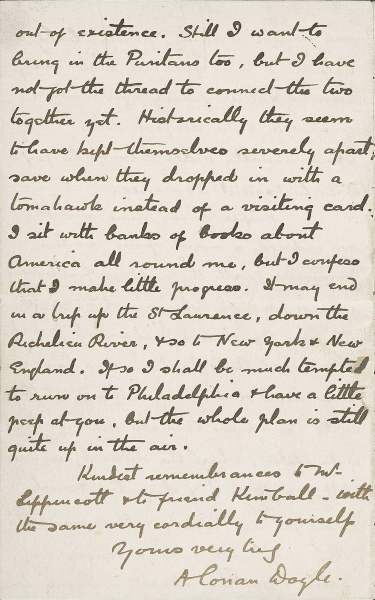 out of existence. Still I want to
bring in the Puritans too, but I have
not got the thread to connect the two
together yet. Historically they seem
to have kept themselves severely apart,
save when they dropped in with a
tomahawk instead of a visiting card.
I sit with banks of books about
America all round me, but I confess
that I make little progress. It may end
in a trip up the St Laurence, down the
Richelieu River, & so to New York & New
England. If so I shall be much tempted
to run on to Philadelphia & have a little
peep at you, but the whole plan is still
quite up in the air.
Kindest remembrances to Mr
Lippencott & to friend Kimball - with
the same very cordially to yourself
Yours very truly
A Conan Doyle.